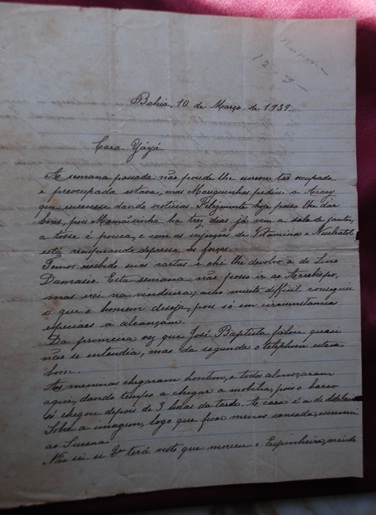 12-9-
Bahia, 10 de Março de 1939.
Cara Yáyá
A semana passada não poude lhe escrever tão ocupada
e preocupada estava, mas Mauzinha pediu a Aracy
que escrevesse dando noticias. Felizmente hoje posso lhe dar
boas, pois Mamãesinha ha tres dias já vem a sala de jantar,
a tosse é pouca, e com as injeções de Vitaminas e
está readquirindo depressa as forças.
Temos recebido suas cartas e ahi lhe devolvo a de Lino
Damasio. Esta semana não posso ir ao Arcebispo,
mas irei na vindoura; acho muito difficil conseguir
o que o homem deseja, pois só em circumstancias
especiaes a alcançam.
Da primeira vez que José Baptista falou quasi
não se entendia, mas da segunda o telephone estava
bom.
Os meninos chegaram hontem, e todos almoçaram
aqui, dando tempo a chegar a mobilia, pois o barco
só chegou depois de 3 horas da tarde. A casa é a de
Sobre a imagem, logo que fica menos cansada, escrevem
ao
Não sei se já terá visto que morreu o Espinheira, marido